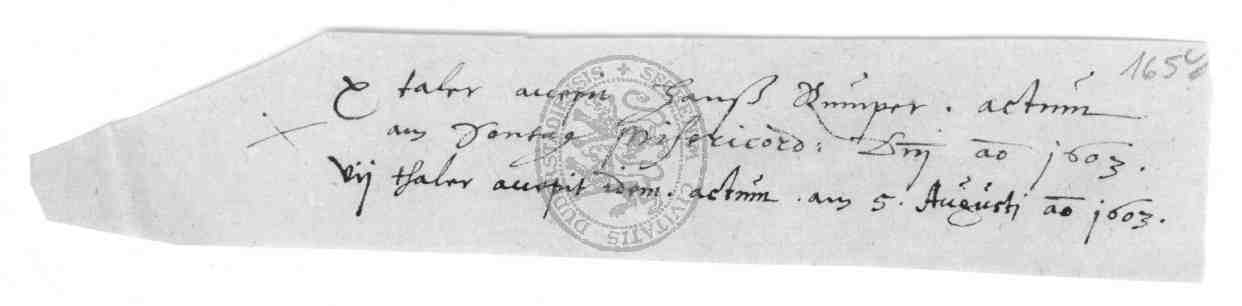 165
X taler accepit Hanß Rumper . actum
am Sontag Misericord: Dnj ao 1603.
vij thaler accepit idem . actum . am 5. Augusti ao 1603.